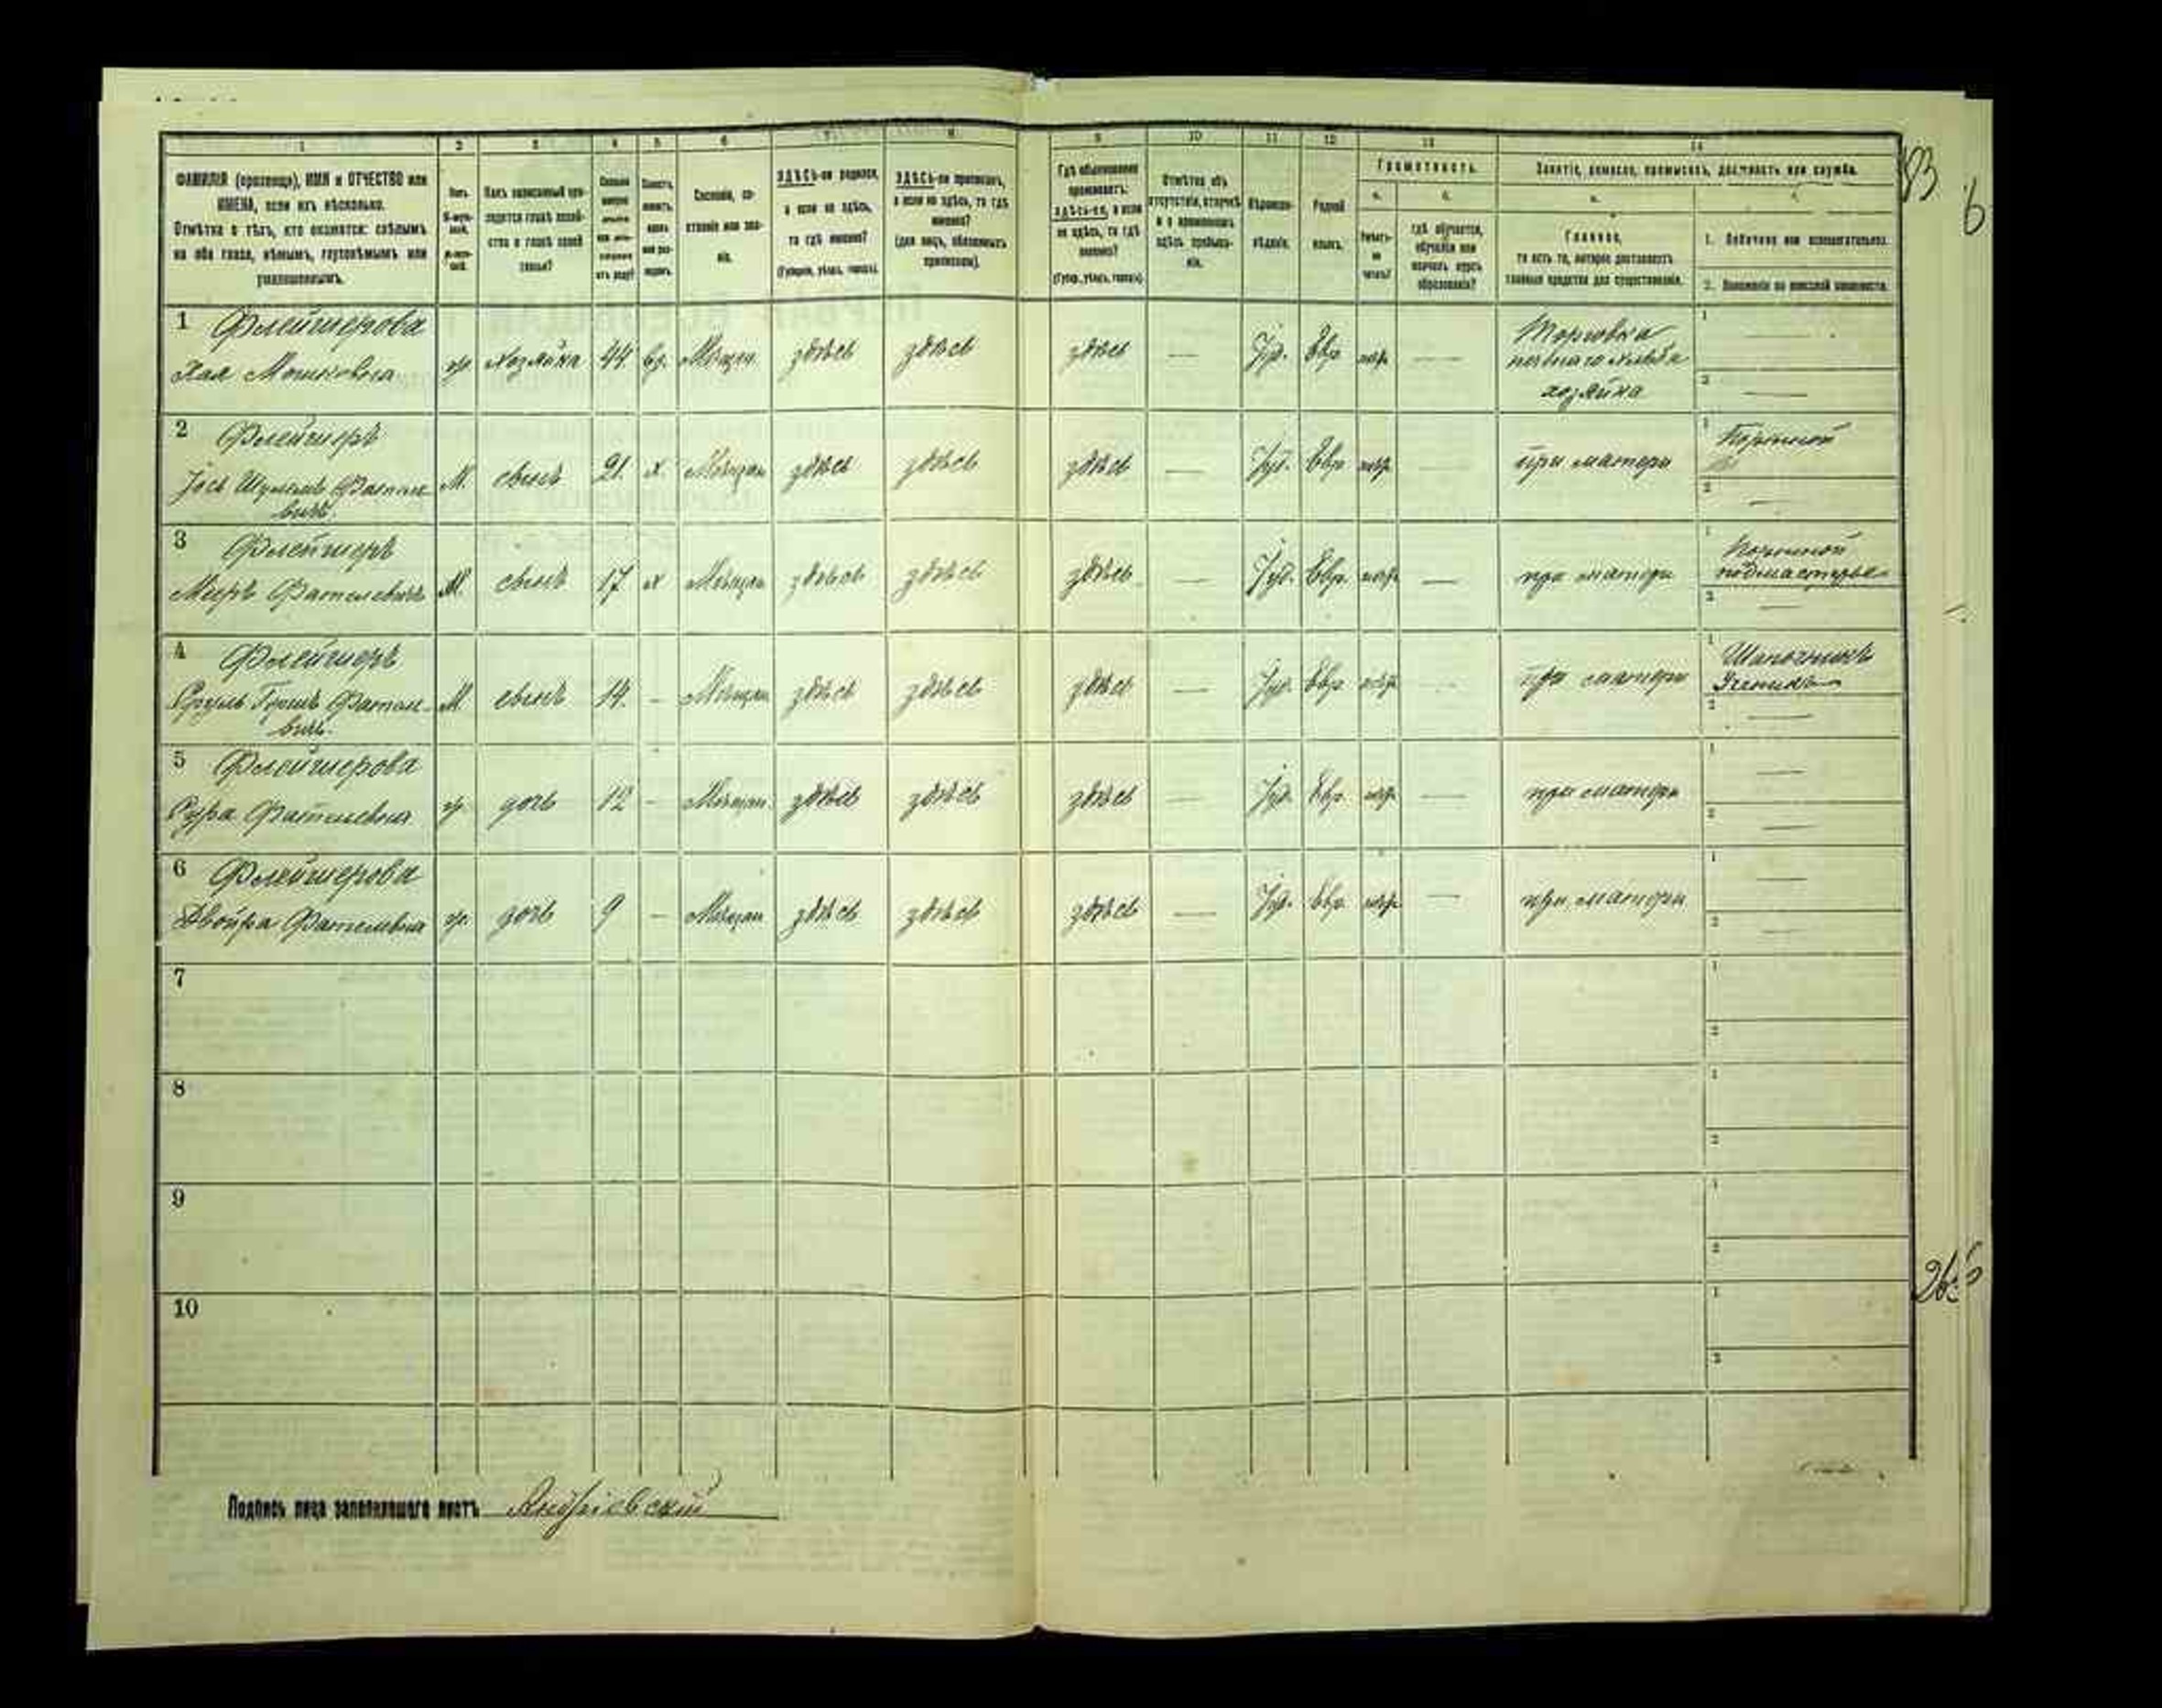 1 2 3 4 5 6 7 8 9 10 11 12 13 14
ФАМИЛІЯ (прозвище), ИМЯ и ОТЧЕСТВО или
ИМЕНА, если ихъ нѣсколько.
Отмѣтка о тѣхъ, кто окажется: слѣпымъ
на оба глаза, нѣмымъ, глухонѣмымъ или
умалишеннымъ.
Полъ.
Какъ записанный при-
ходится главѣ хозяй-
ства и главѣ своей
семьи?
Сословіе, со-
стояніе или зва-
ніе.
ЗДѢСЬ-ли родился,
а если не здѣсь,
то гдѣ именно?
(Губернія, уѣздъ, городъ).
ЗДѢСЬ-ли приписанъ,
а если не здѣсь, то гдѣ
именно?
(для лицъ, обязанныхъ
припискою).
Гдѣ обыкновенно
проживаетъ:
ЗДѢСЬ-ли, а если
не здѣсь, то гдѣ
именно?
(Губер., уѣздъ, городъ).
Отмѣтка объ
отсутствіи, отлучкѣ
и о временномъ
здѣсь пребыва-
ніи.
Вѣроиспо-
вѣданіе.
Родной
языкъ.
Грамотность.
а. б.
Умѣетъ-
ли
читать?
гдѣ обучается,
обучался или
кончилъ курсъ
образованія?
Занятіе, ремесло, промыселъ, должность или служба.
а.
Главное,
то есть то, которое доставляетъ
главныя средства для существованія.
1. Побочное или вспомогательное.
2. Положеніе по воинской повинности.
183
6
1 Флейшерова
Хая Мошковна
хозяйка 44 вд. Мѣщан. здѣсь здѣсь здѣсь — Іуд. Евр. —
Торговка
печенаго хлѣба
хозяйка
1 —
2 —
2 Флейшеръ
Іось Шулимъ
М. сынъ 21 х. Мѣщан здѣсь здѣсь здѣсь — Іуд. Евр. при матери
1 Портной
2 —
3 Флейшеръ
Мееръ
М. сынъ 17 х Мѣщан здѣсь здѣсь здѣсь — Іуд. Евр. — при матери
1 Портной
подмастерье
2 —
4 Флейшеръ
Сруль Гершъ
М. сынъ 14 – Мѣщан здѣсь здѣсь здѣсь — Іуд. Евр. при матери
1 Шапочникъ
Ученикъ
2 —
5 Флейшерова
Сура
дочь 12 – Мѣщан. здѣсь здѣсь здѣсь — Іуд. Евр. при матери
1 —
2 —
6 Флейшерова
Двойра
дочь 9 – Мѣщан здѣсь здѣсь здѣсь — Іуд. Евр. — при матери
1 —
2 —
7
1
2
8
1
2
9
1
2
10
1
2
Подпись лица заполнившаго листъ Андріевскій